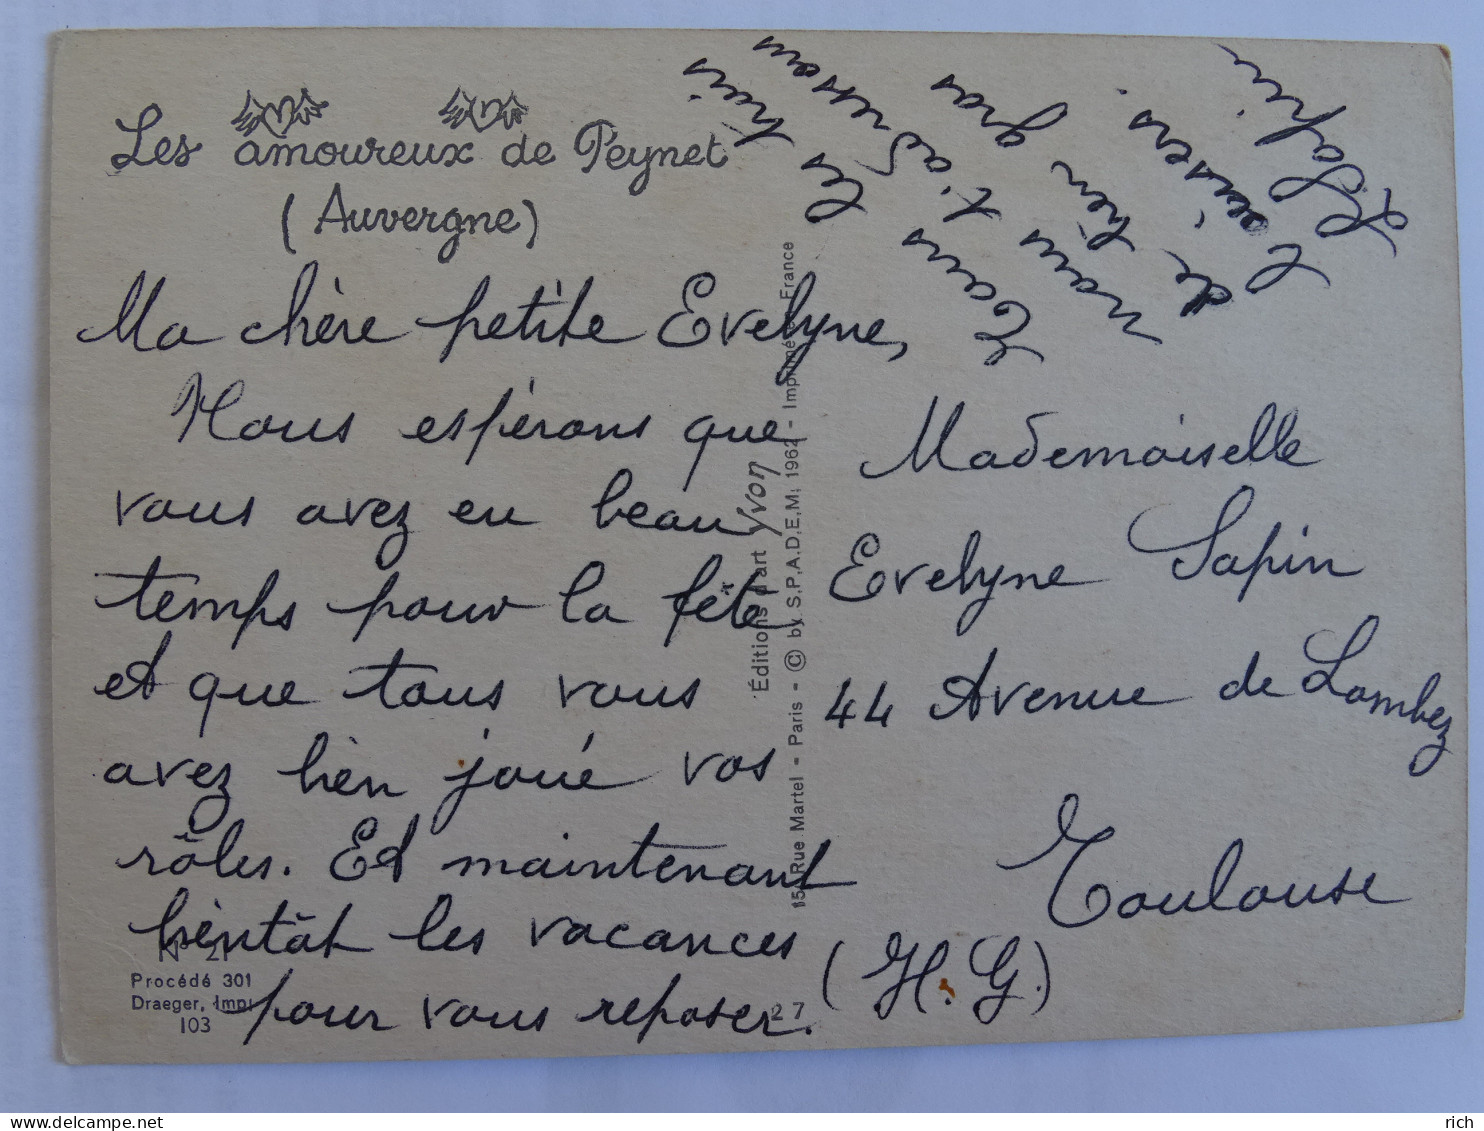 Les amoureux de Peynet
(Auvergne)
Ma chère petite Evelyne,
Nous espérons que
vous avez eu beau
temps pour la fête
et que tous vous
avez bien joué vos
rôles. Et maintenant
bientôt les vacances
pour vous reposer.
Tous les trois
nous t'adressons
de bien gros
baisers.
Sapin
Mademoiselle
Evelyne Sapin
44 Avenue de Lombez
Toulouse
(H.G.)
Éditions d'art Yvon
15, Rue Martel - Paris - © by S.P.A.D.E.M. 1962 - Imprimé en France
N° 21
Procédé 301
Draeger, Imp.
103
27
rich